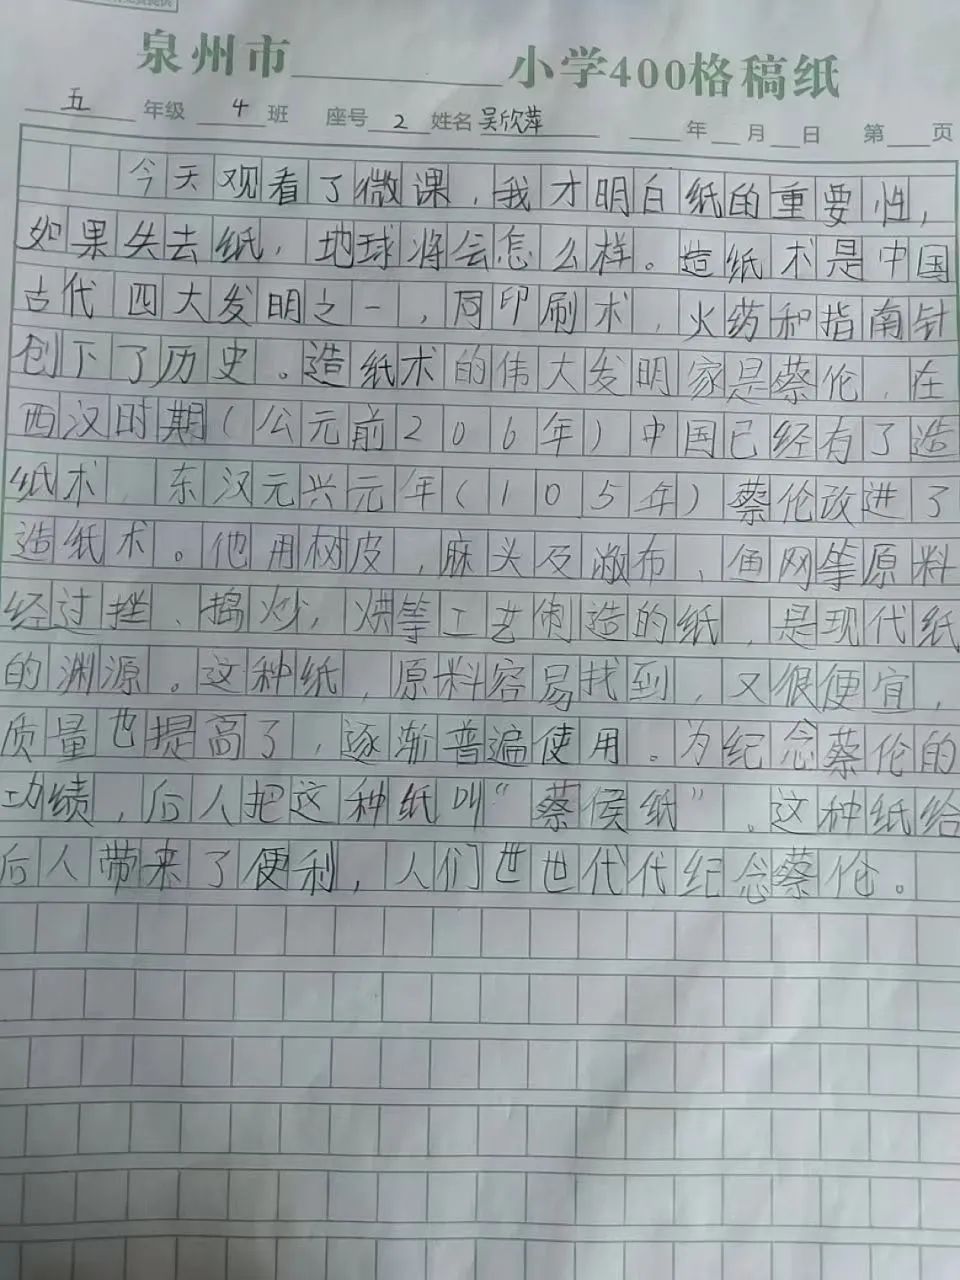 泉州市________小学400格稿纸
五 年级 4 班 座号 2 姓名 吴欣萍 ____年__月__日 第__页
今天观看了微课，我才明白纸的重要性，
如果失去纸，地球将会怎么样。造纸术是中国
古代四大发明之一，同印刷术、火药和指南针
创下了历史。造纸术的伟大发明家是蔡伦，在
西汉时期（公元前206年）中国已经有了造
纸术，东汉元兴元年（105年）蔡伦改进了
造纸术。他用树皮、麻头及敝布、鱼网等原料
经过挫、捣、炒，烘等工艺制造的纸，是现代纸
的渊源。这种纸，原料容易找到，又很便宜，
质量也提高了，逐渐普遍使用。为纪念蔡伦的
功绩，后人把这种纸叫“蔡侯纸”。这种纸给
后人带来了便利，人们世世代代纪念蔡伦。